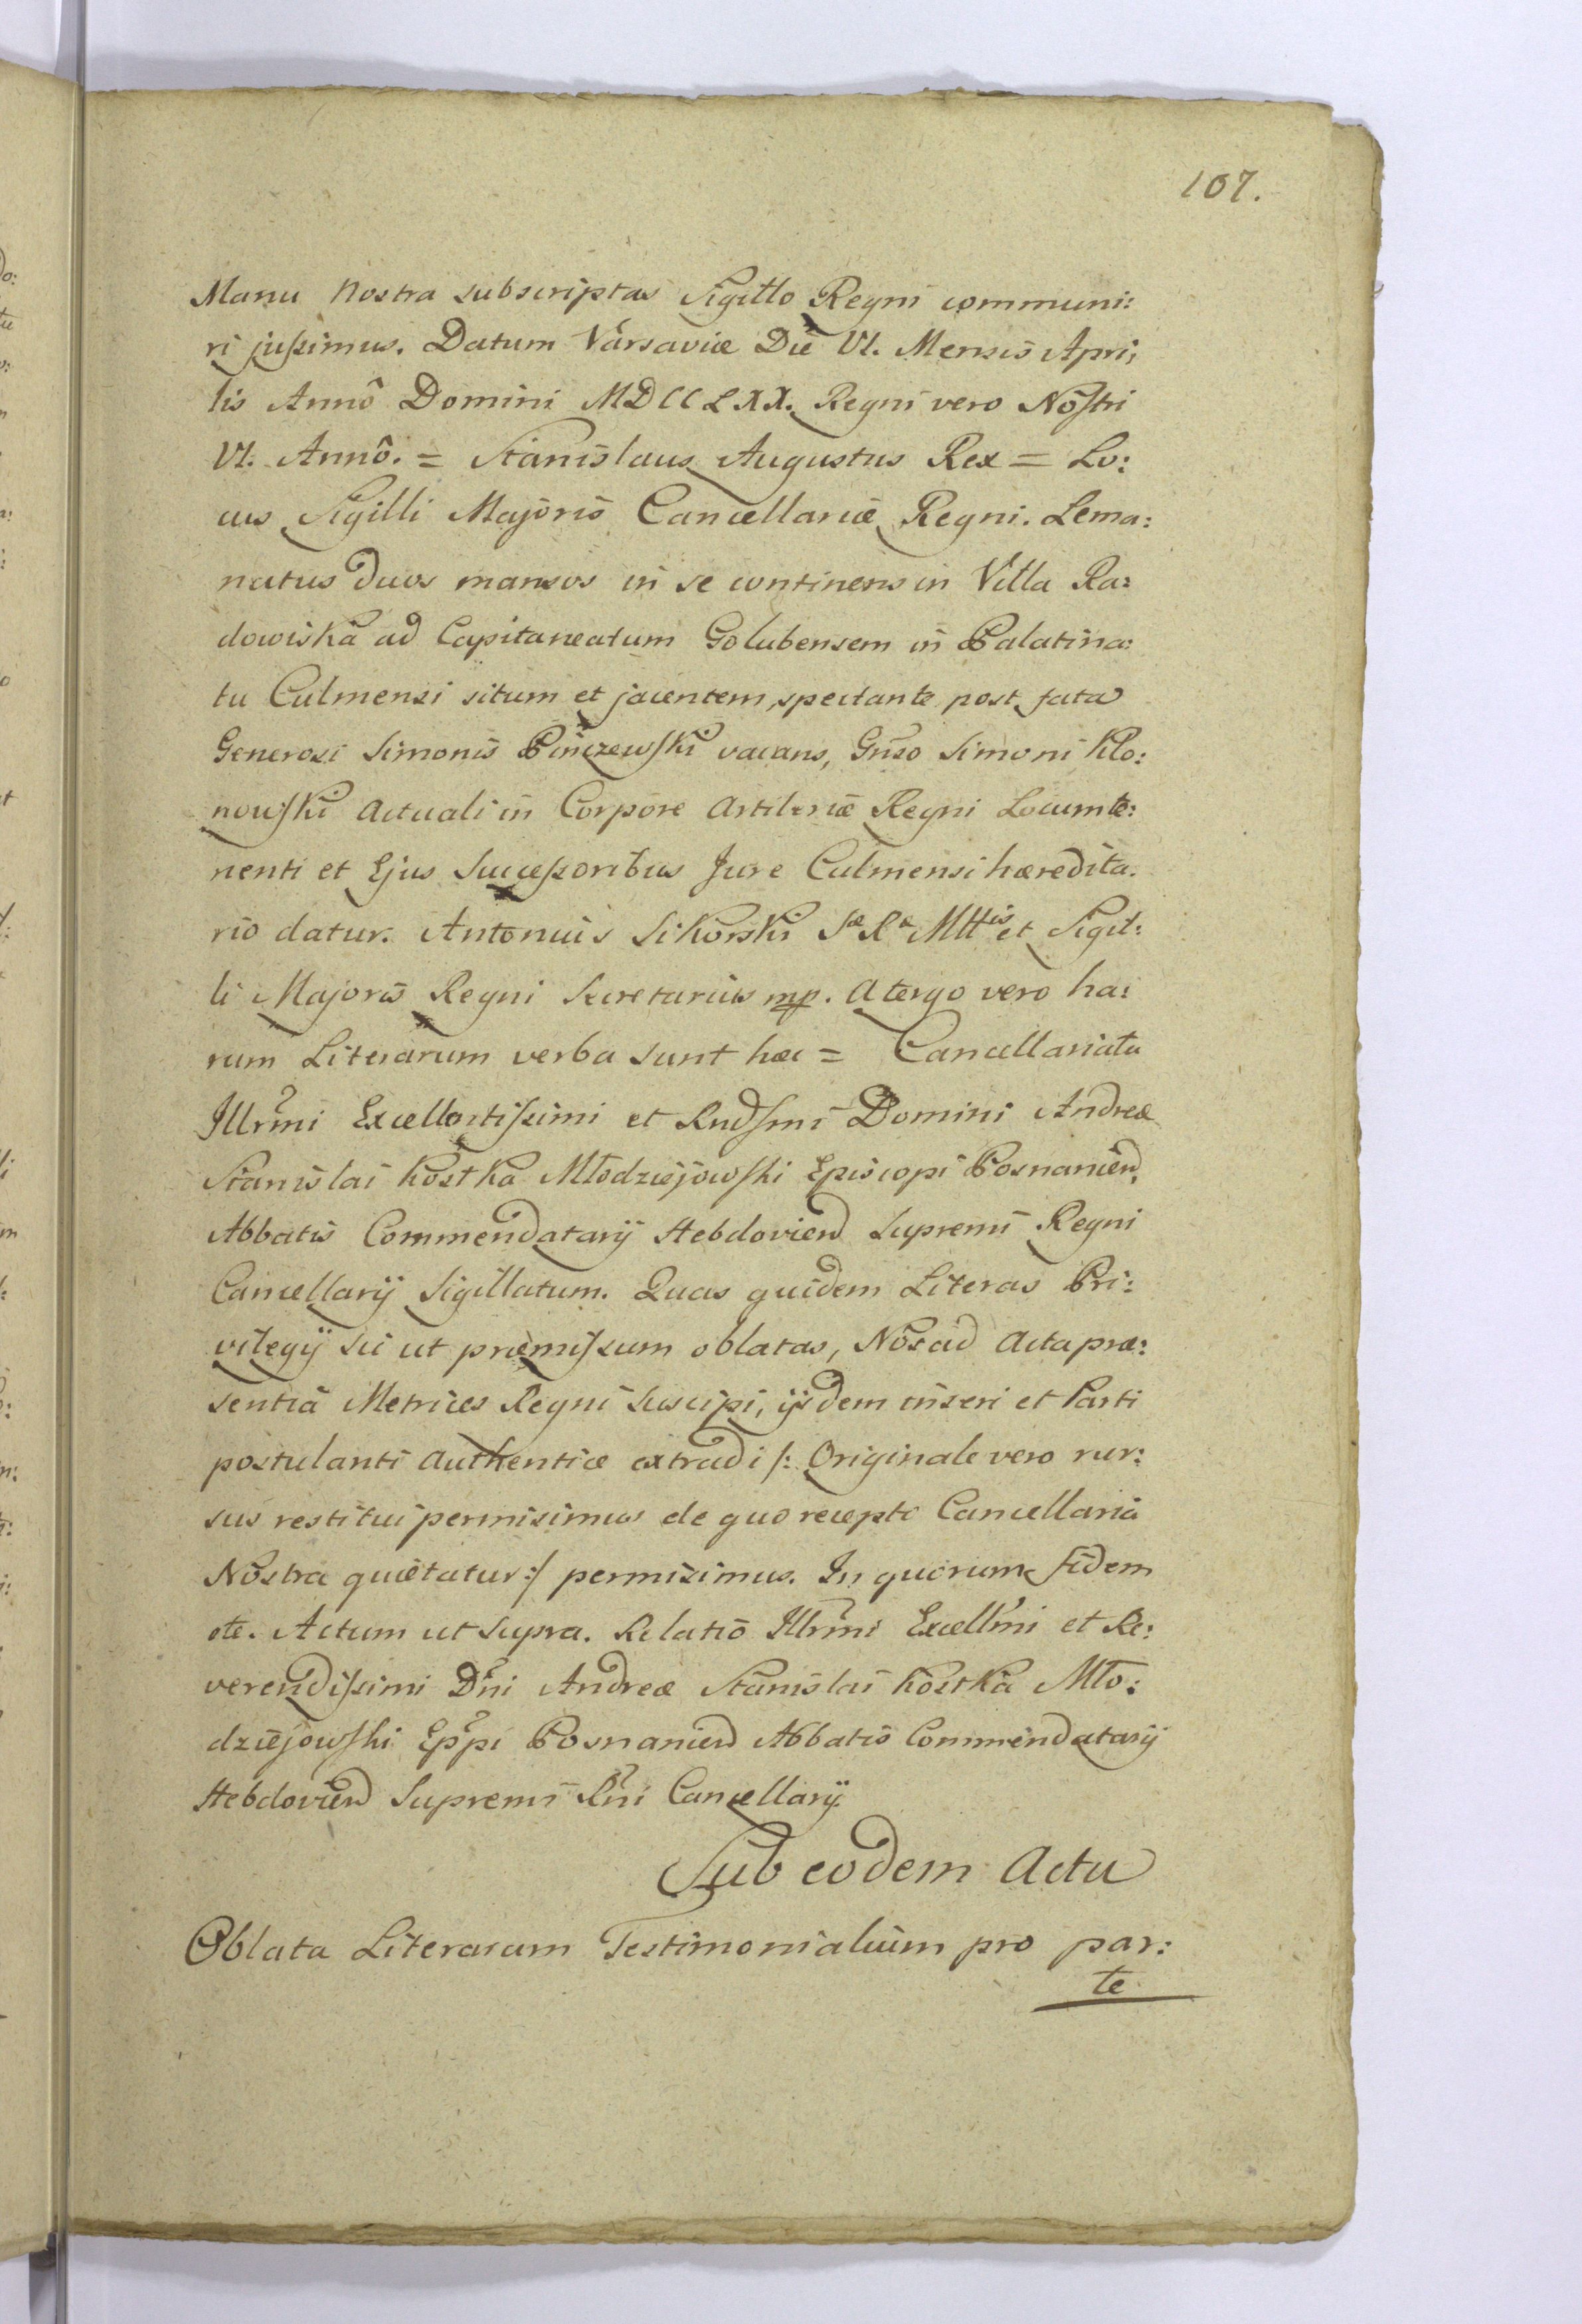 107.
Manu Nostra subscriptas Sigillo Regni communi:
ri jussimus. Datum Varsaviæ Die VI. Mensis Apri:
lis Annô Domini MDCCLXX. Regni vero Nostri
VI. Annô. = Stanislaus Augustus Rex = Lo:
cus Sigilli Majoris Cancellariæ Regni. Lema:
natus duos mansos in se continens in Villa Ra:
dowiska ad Capitaneatum Golubensem in Palatina:
tu Culmensi situm et jacentem, spectante post fata
Generosi Simonis Pinczewski vacans, Gnso Simoni Klo:
nowski Actuali in Corpore Artileriæ Regni Locumte:
nenti et Ejus Successoribus Jure Culmensi hæredita:
rio datur. Antonius Sikorski Sæ Ræ Mttis et Sigil:
li Majoris Regni Secretarius mp. A tergo vero ha:
rum Literarum verba sunt hæc = Cancellariatu
Illrmi Excellentissimi et Rndsmi Domini Andreæ
Stanislai Kostka Młodziejowski Episcopi Posnanien,
Abbatis Commendatarij Hebdovien Supremi Regni
Cancellarij Sigillatum. Quas quidem Literas Pri:
vilegij sic ut præmissum oblatas, Nos ad Acta præ:
sentia Metrices Regni suscipi, ijsdem inseri et Parti
postulanti authentice extradi /: Originale vero rur:
sus restitui permisimus de quo recepto Cancellaria
Nostra quietatur :/ permisimus. In quorum fidem
etc. Actum ut supra. Relatio Illrmi Excellmi et Re:
verendissimi Dni Andreæ Stanislai Kostka Mło:
dziejowski Eppi Posnanien Abbatis Commendatarij
Hebdovien Supremi Rni Cancellarij
Sub eodem Actu
Oblata Literarum Testimonialium pro par:
te